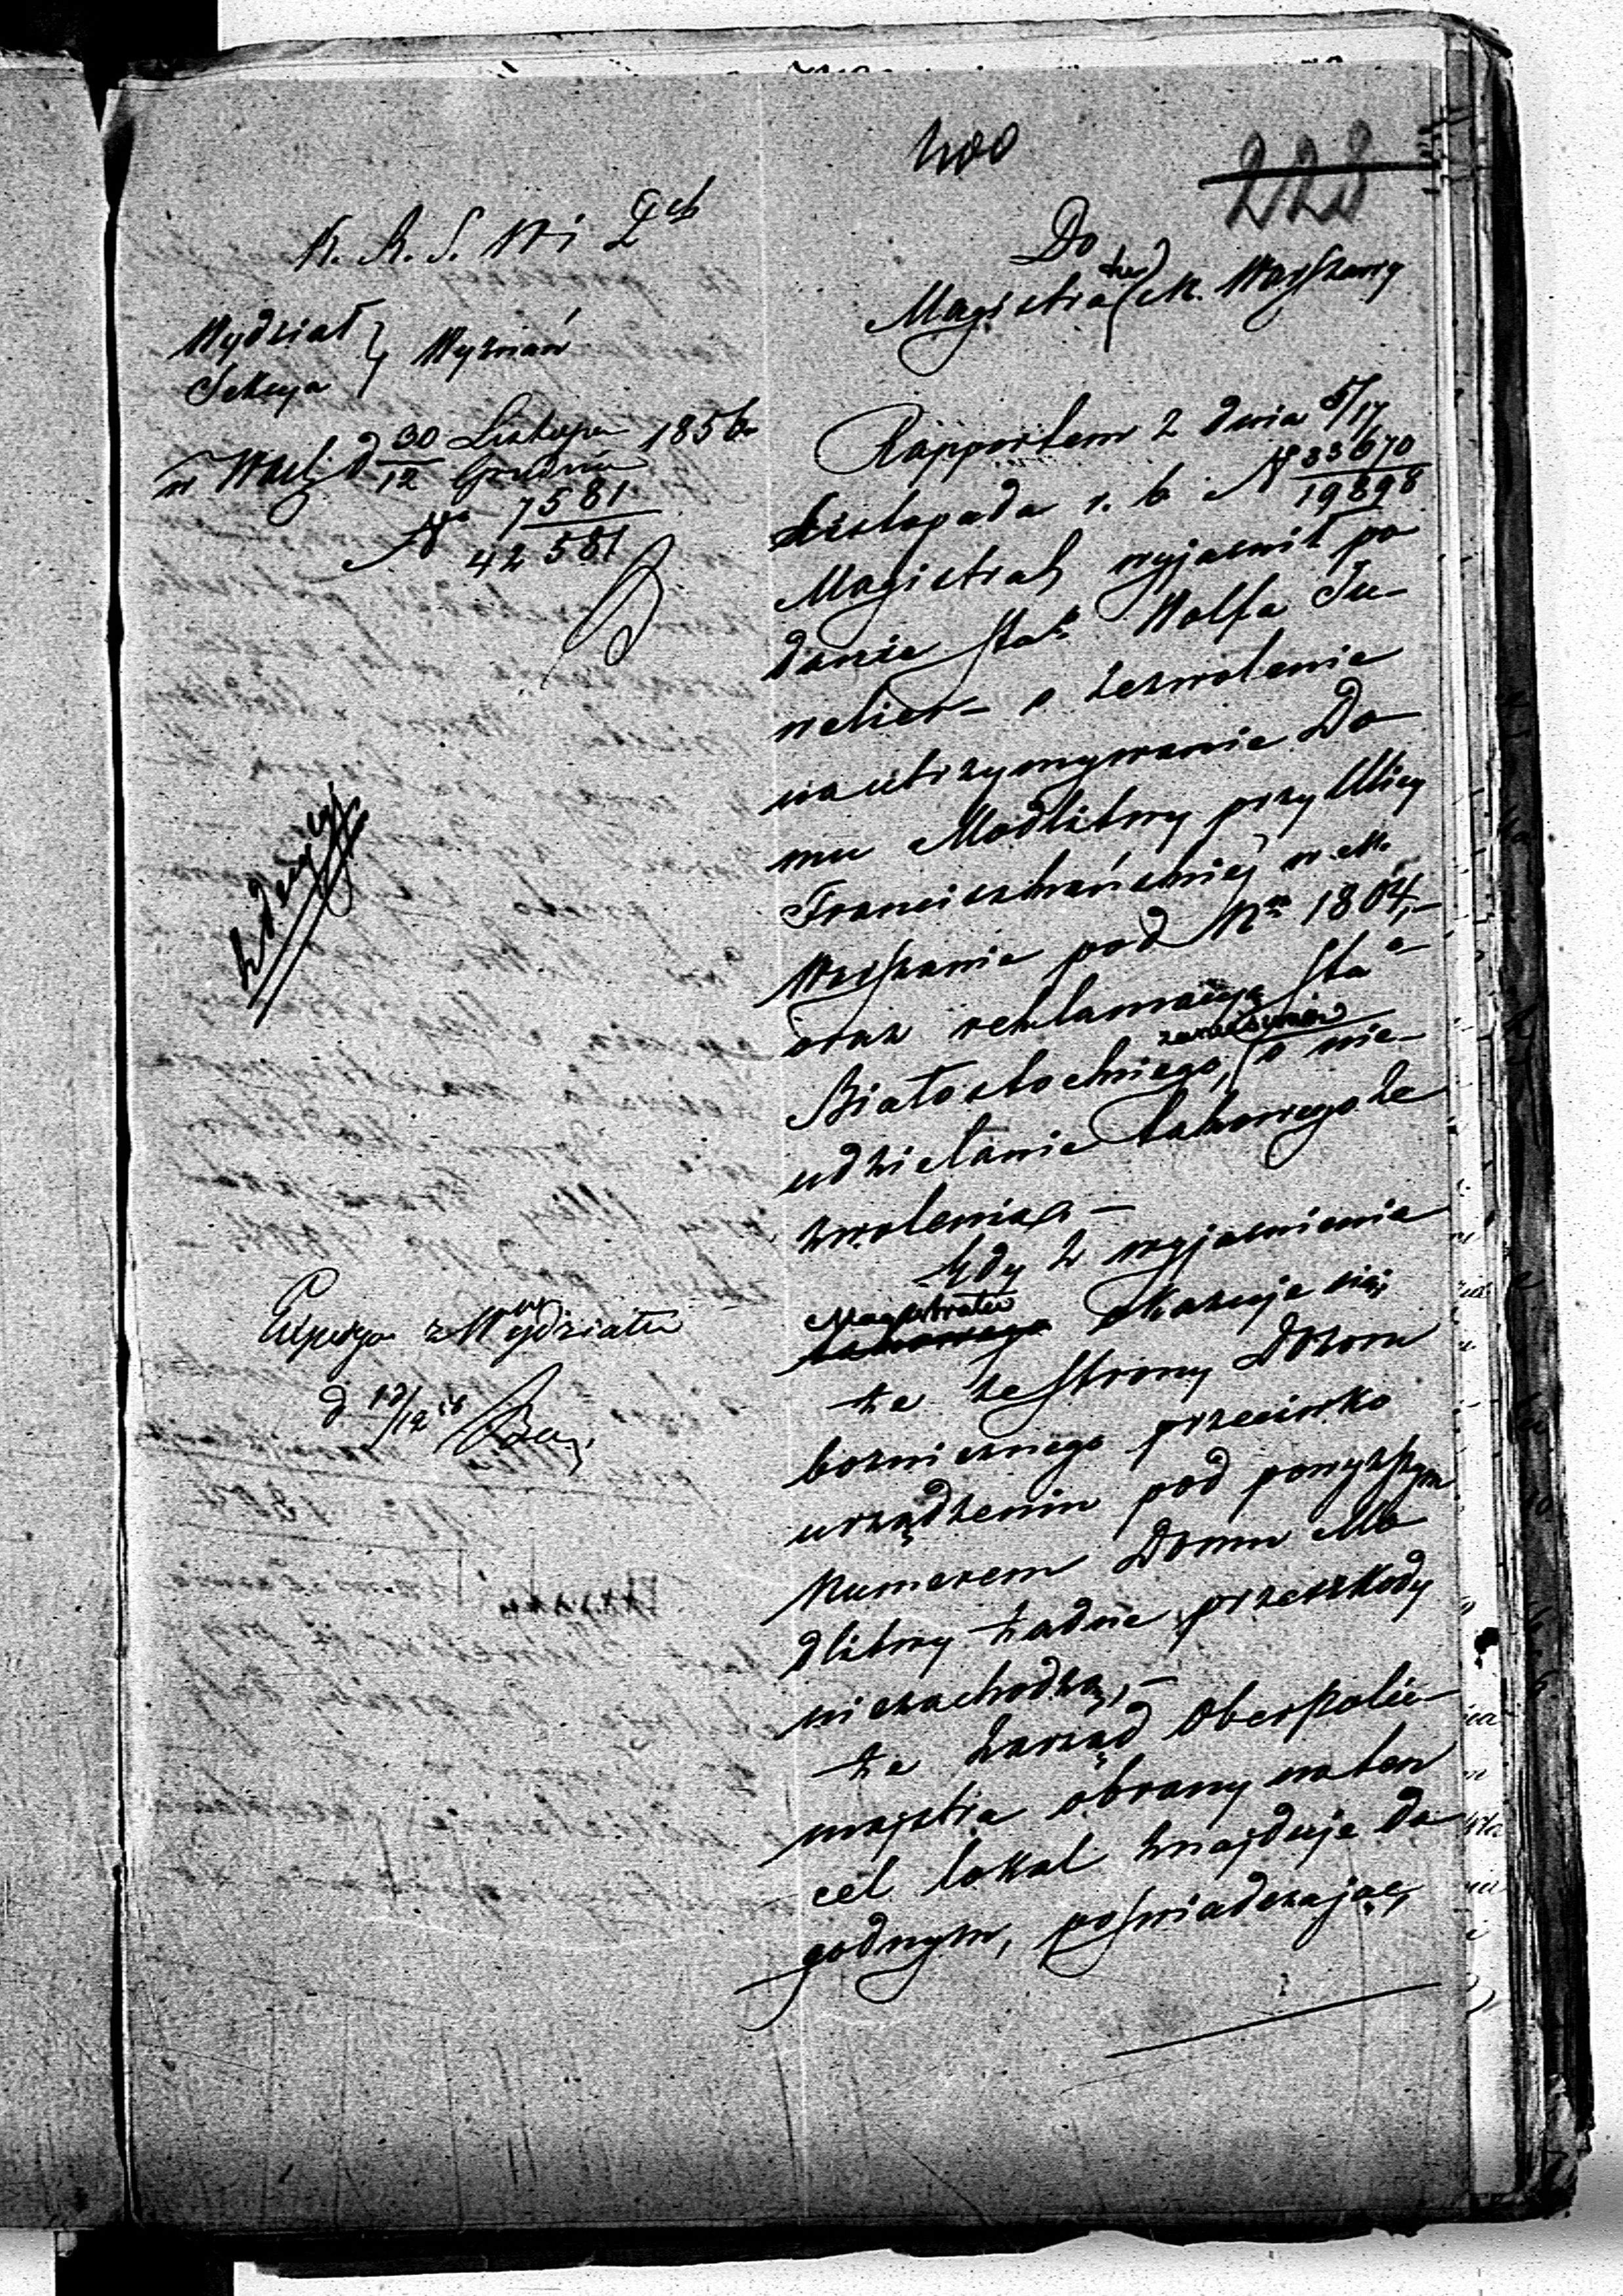 400
228
K. R. S. W i D
Wydział
Sekcya } Wyznań
w Warsz d 30/12 Listopa/Grudnia 1856
No 7581/42581
Expedyo z Wydziału
d 13/12
Do
Magistratu M. Warszawy
Rapportem z dnia 5/17
Listopada r. b. N 33670/19898
Magistrat wyjasnił po
danie Stak Wolfa Ju-
o zezwolenie
na utrzymywanie Do
mu Modlitwy przy Ulicy
Franciszkańskiej w M.
Warszawie pod Nrm 1804,-
oraz reklamacyą Stak
Białostockiego, o nie-
udzielanie takowego ze
zwolenia -
Gdy z wyjasnienia
Magistratu okazuje się;
że ze strony Dozoru
bozniczego przeciwko
urządzeniu pod powyższym
Numerem Domu Mo
dlitwy żadne przeszkody
niezachodzą, -
że Zarząd Oberpolic-
majstra obrany na ten
cel lokal znajduje do
godnym, poswiadczając,